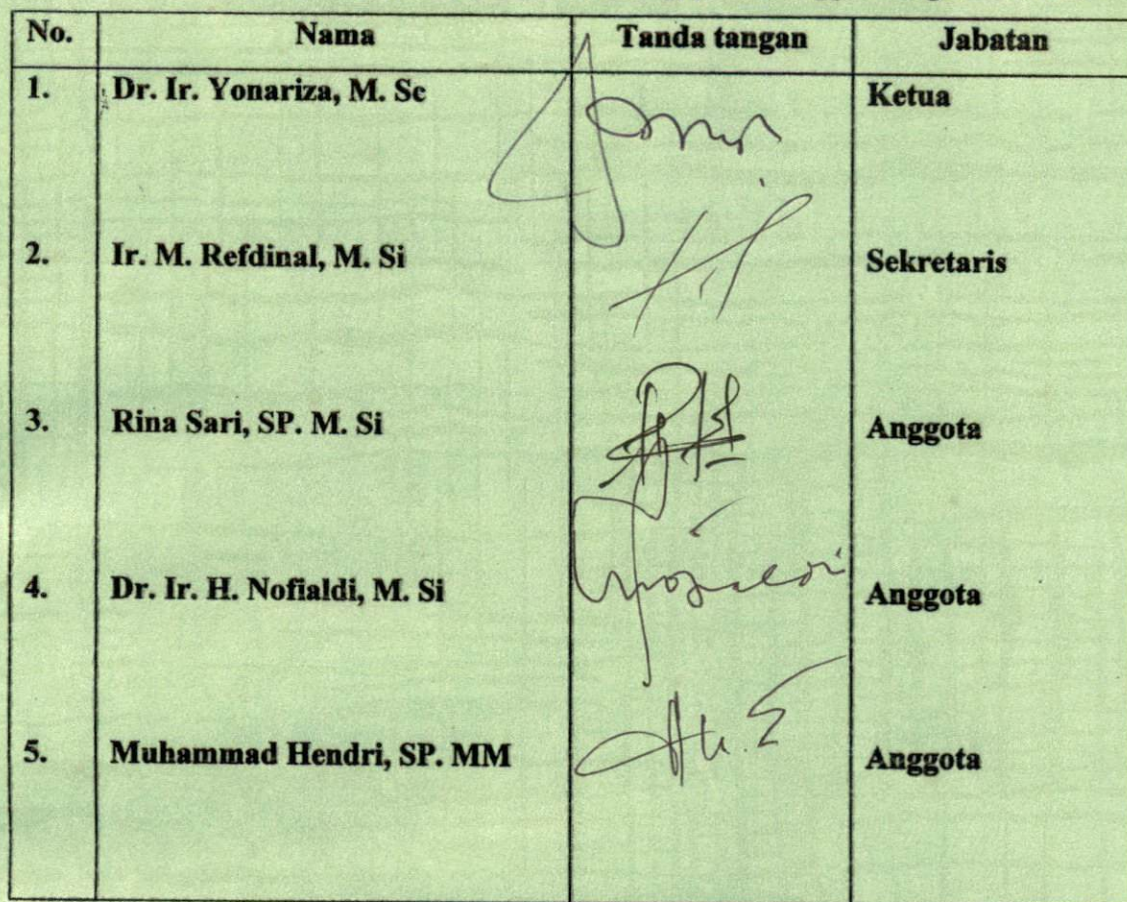 No. Nama Tanda tangan Jabatan
1. Dr. Ir. Yonariza, M. Sc Ketua
2. Ir. M. Refdinal, M. Si Sekretaris
3. Rina Sari, SP. M. Si Anggota
4. Dr. Ir. H. Nofialdi, M. Si Anggota
5. Muhammad Hendri, SP. MM Anggota